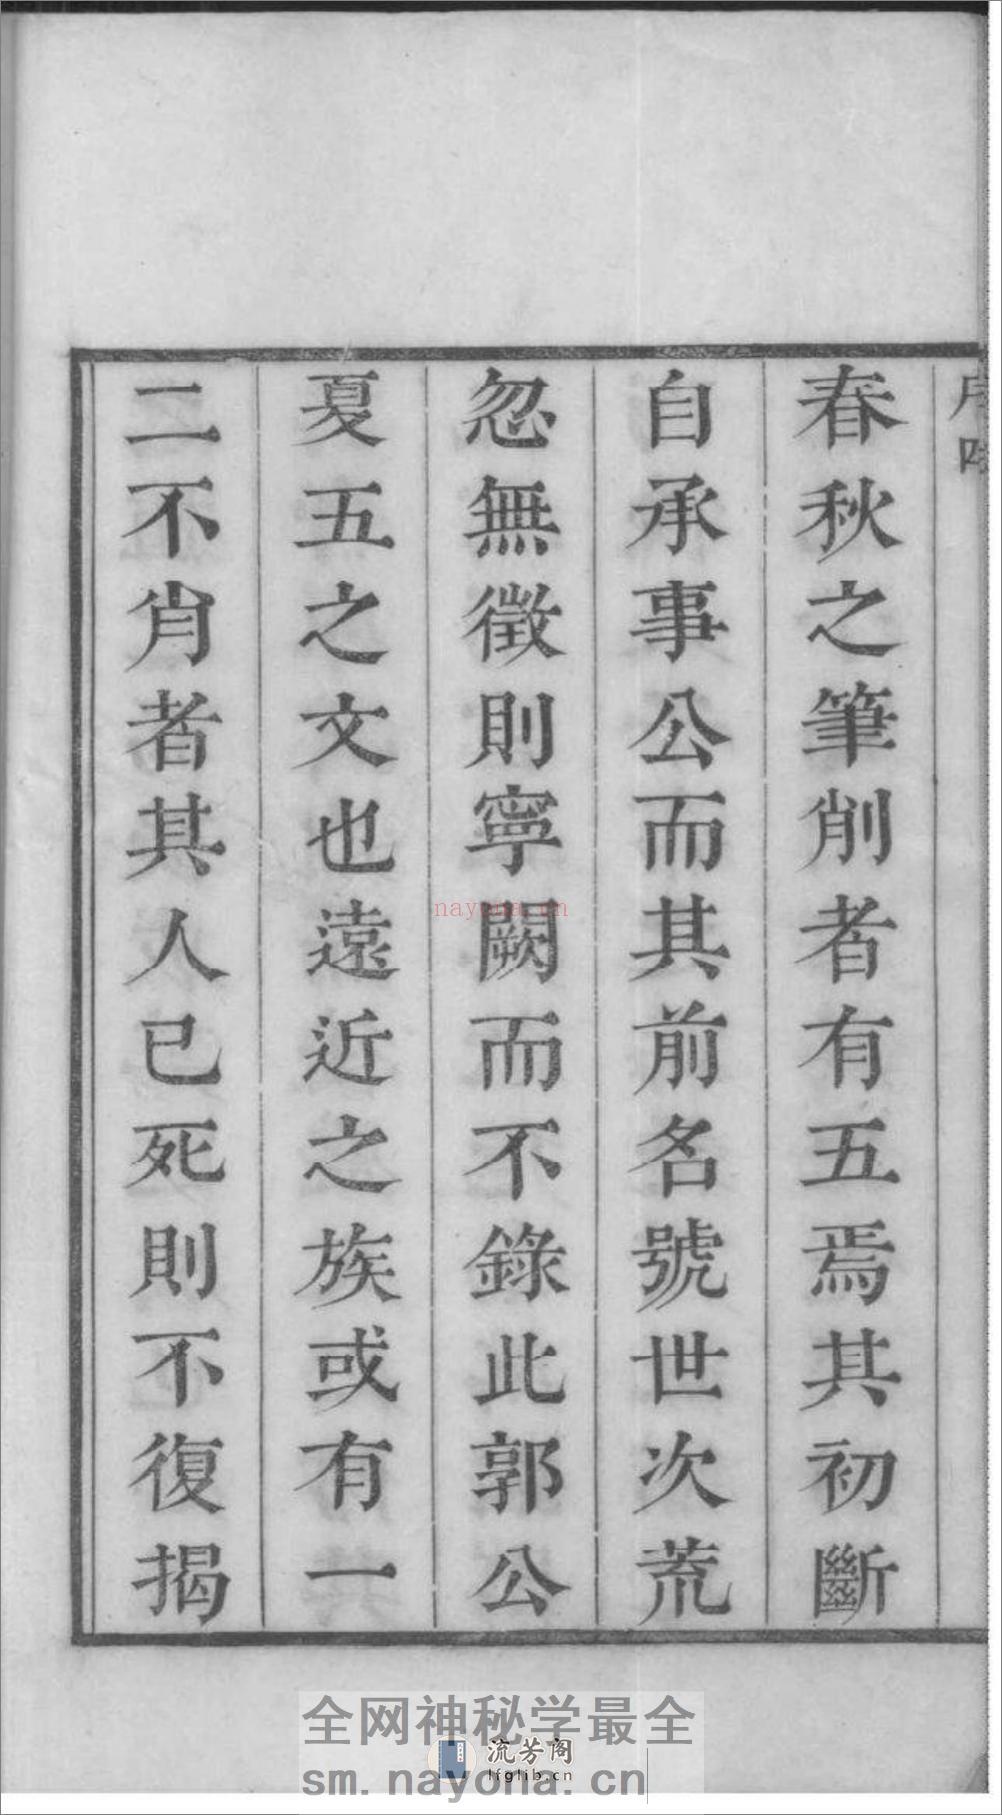 春秋之筆削者有五焉其初斷
自承事公而其前名號世次荒
忽無徵則寧闕而不錄此郭公
夏五之文也遠近之族或有一
二不肖者其人已死則不復揭
nayona.cn
全网神秘学最全
流芳阁
lfglib.cn
sm.nayona.cn